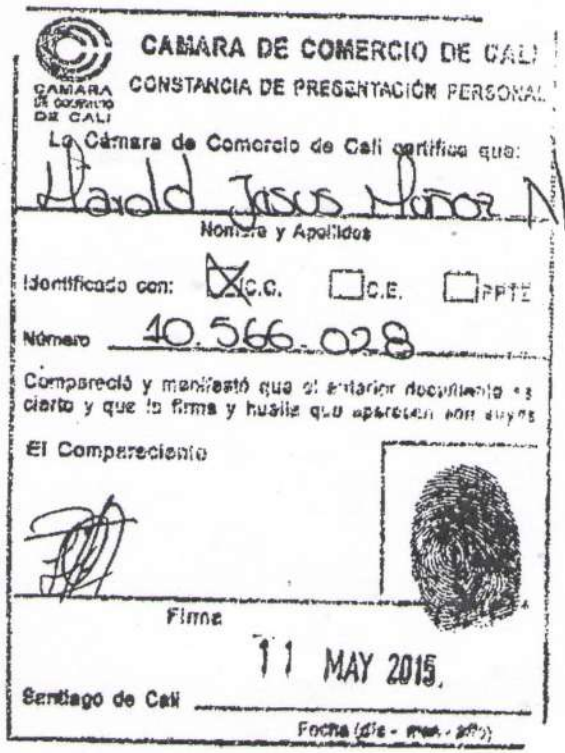 CAMARA DE COMERCIO DE CALI
CONSTANCIA DE PRESENTACIÓN PERSONAL
CAMARA
DE COMERCIO
DE CALI
La Cámara de Comercio de Cali certifica que:
Harold Jesus Muñoz N
Nombre y Apellidos
Identificado con: X C.C. C.E. PPTE
Número 10.566.028
Compareció y manifestó que el anterior documento es
cierto y que la firma y huella que aparecen son suyas
El Compareciente
Firma
11 MAY 2015
Santiago de Cali
Fecha (día - mes - año)